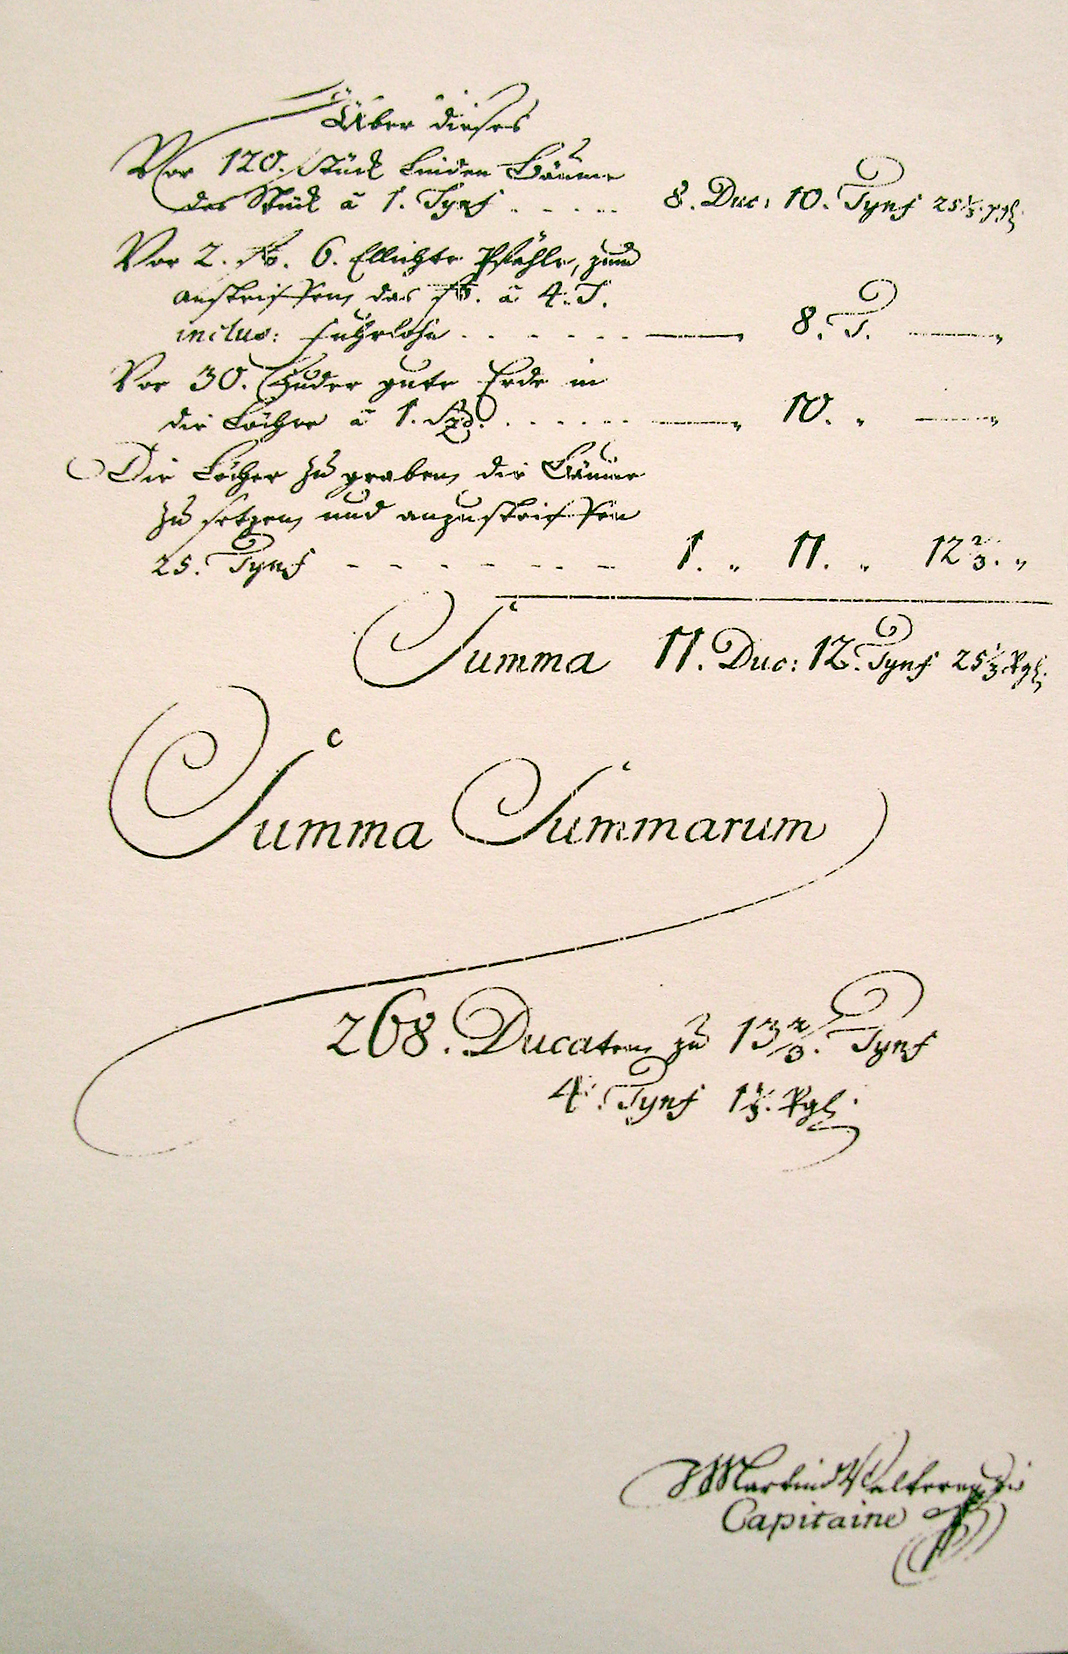 Über dieses
Vor 120. Stück Linden Bäume
das Stück â 1. Tynf . . . . . 8. Duc: 10. Tynf 25 1/3. pgl:
Vor 2. 6. Ellichte Pfähle, zum
das â 4. T.
inclus: Fuhrlohn . . . . . . 8. T.
Vor 30. Fuder gute Erde in
die Löcher â 1. . . . . . . 10. „
Die Löcher zu graben, die Bäume
zu setzen, und
25. Tynf - - - - - - - - 1. „ 11. „ 12 2/3. „
Summa 11. Duc: 12. Tynf 25 1/3. Pgl:
Summa Summarum
268. Ducaten zu 13 2/3. Tynf
4. Tynf 1 1/3. Pgl:
Martin
Capitaine